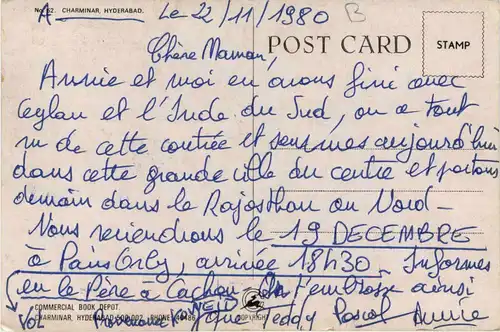 A
No. 52. CHARMINAR, HYDERABAD.
Le 22/11/1980
B
Chère Maman,
POST CARD
STAMP
Annie et moi en avons fini avec
Ceylan et l'Inde du Sud, on a tout
vu de cette contrée et sommes aujourd'hui
dans cette grande ville du centre et partons
demain dans le Rajasthan au Nord -
Nous reviendrons le 19 DECEMBRE
à Paris Orly, arrivée 18h30. Informes
en le Père à Cachou. t'embrasse ainsi
COMMERCIAL BOOK DEPOT.
CHARMINAR, HYDERABAD
COPYRIGHT
VOL
Teddy Pascal Annie